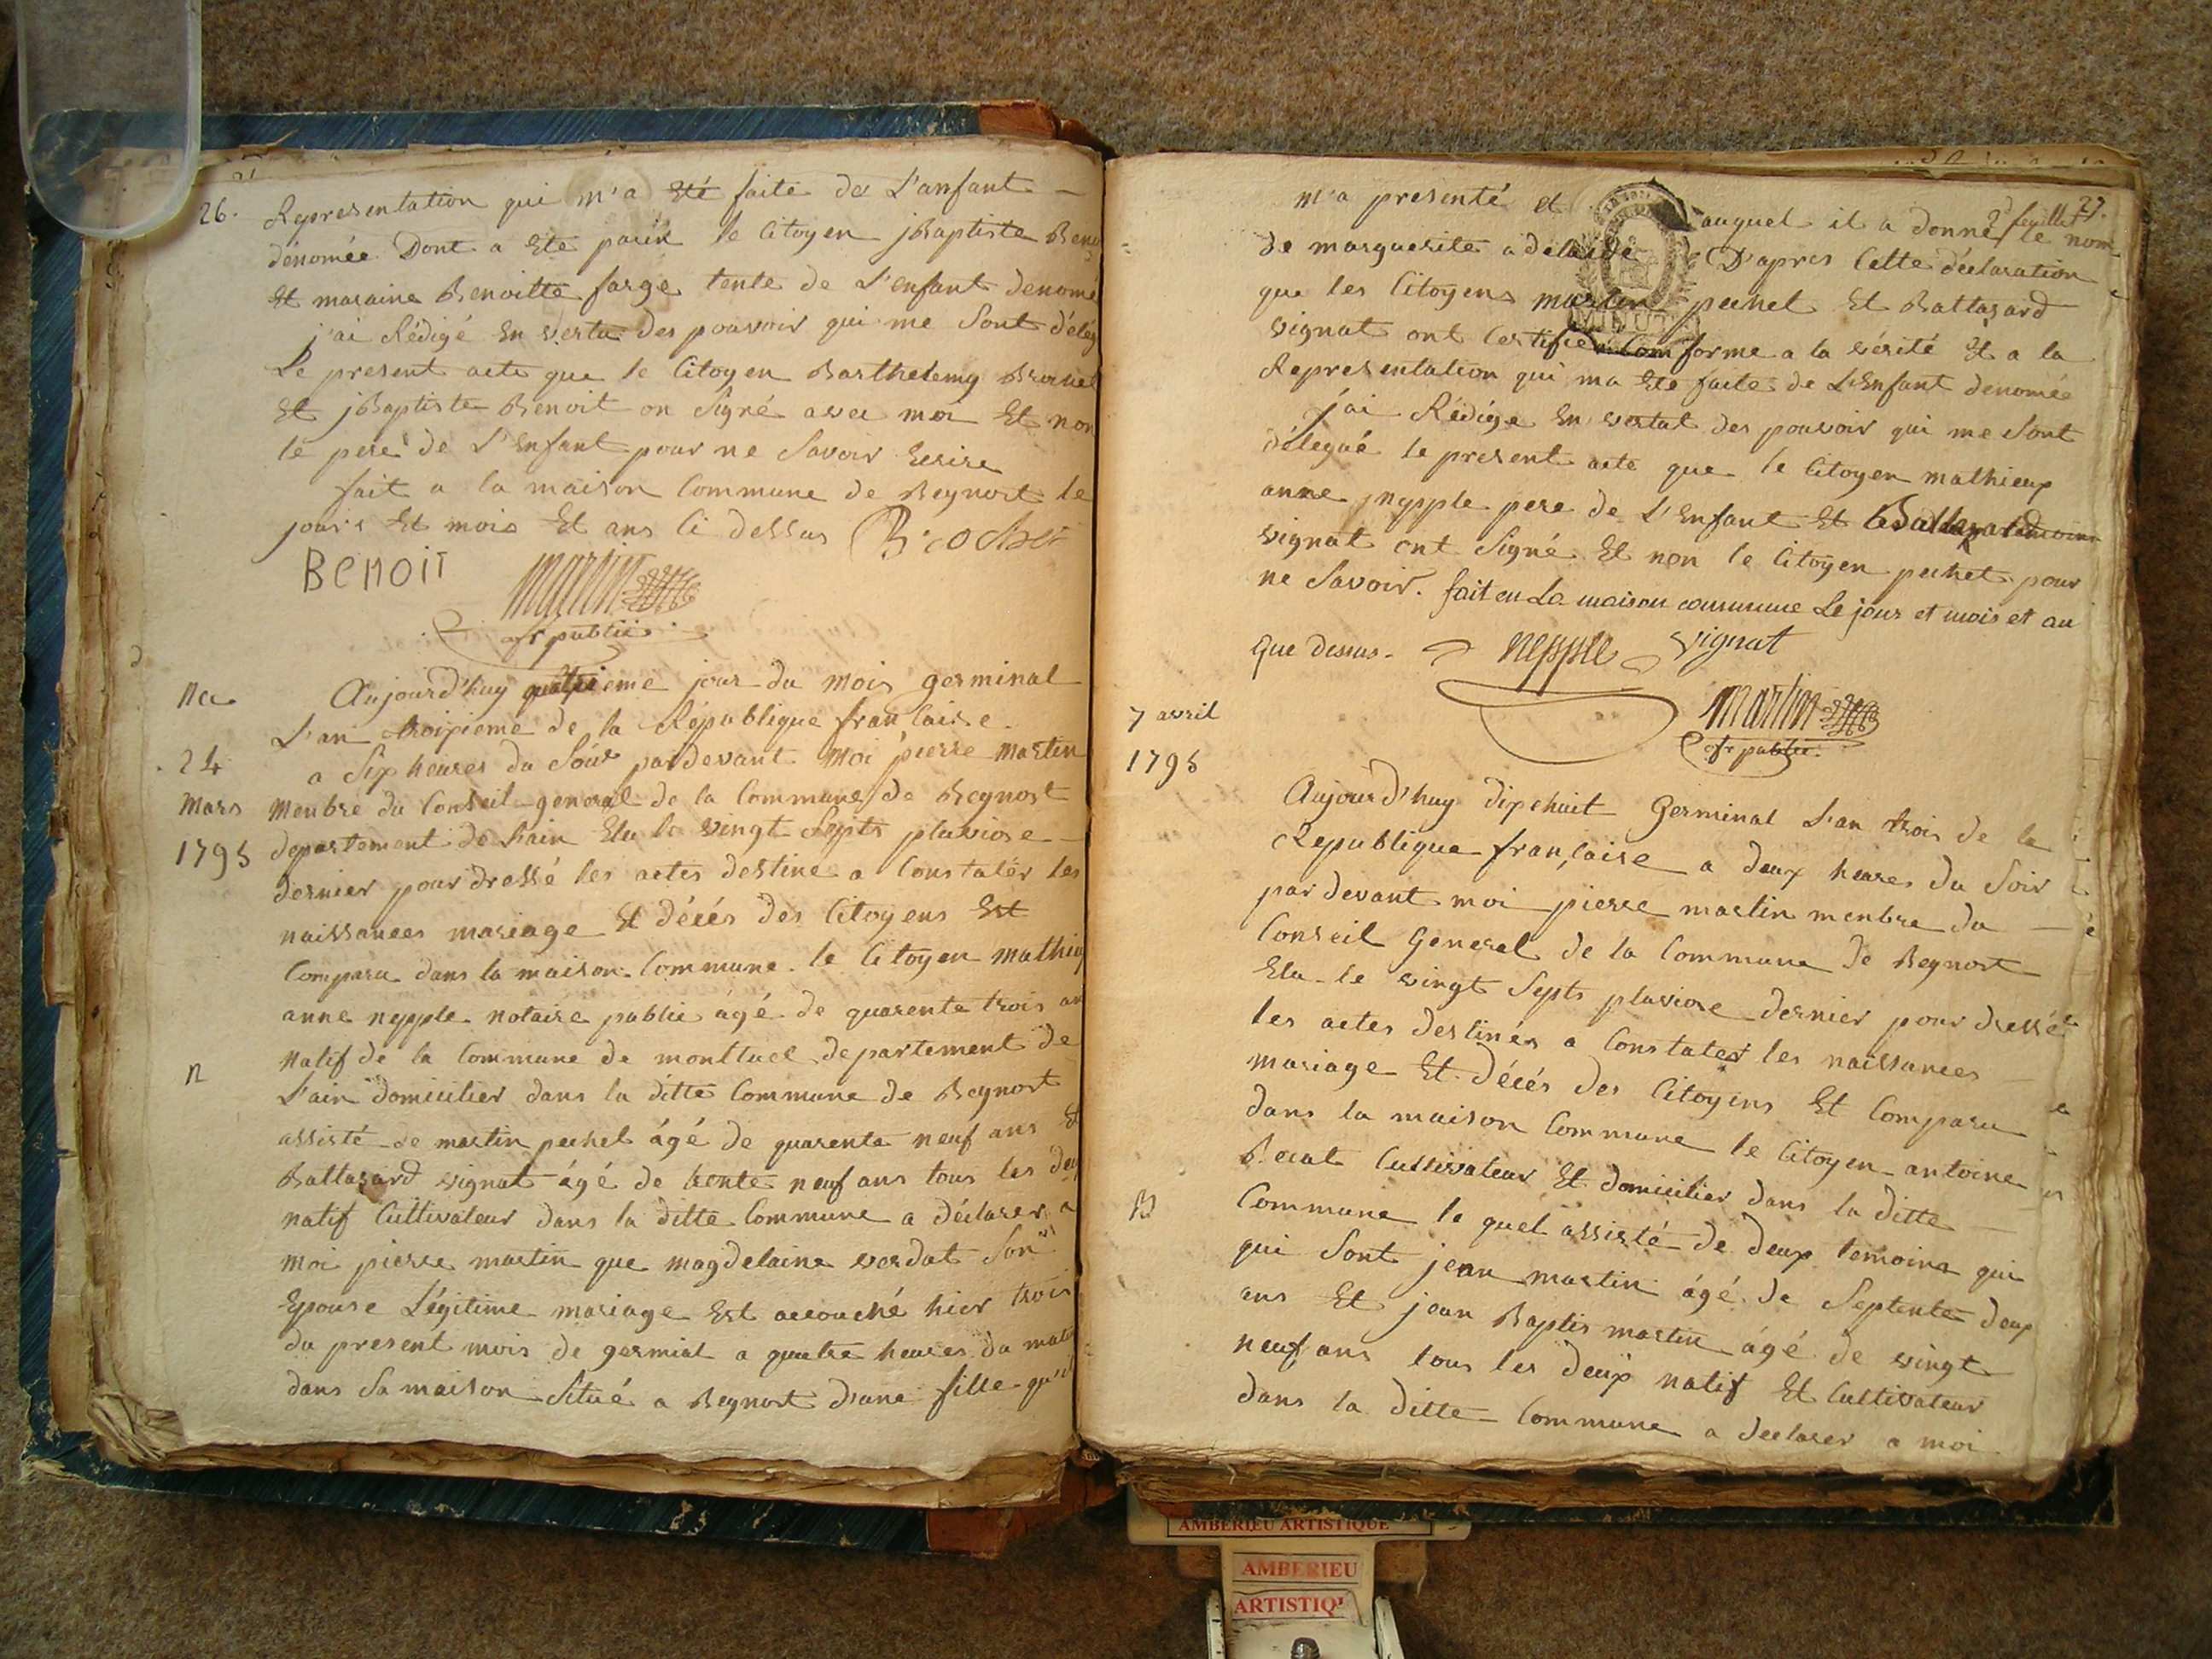 26.
Representation qui m'a Eté faite de L'anfant
dénomée Dont a Ete parèn le Citoyen jBaptiste Beno
Et maraine Benoitte farge tente de L'enfant denomé
j'ai Rédigé En vertu des pouvoir qui me Sont d'élég
Le present acte que le Citoyen Barthelemy
Et jBaptiste Benoit on Signé avec moi Et non
le pere de L'Enfant pour ne Savoir Ecrire
fait a la maison Commune de Beynost le
jours Et mois Et ans Ci dessus
Benoit
martin
ofr public
na
24
mars
1795
n
Aujourd'huy quatrieme jour du mois germinal
L'an troisieme de la République francaise
a Six heures du Soir pardevant moi pierre martin
menbre du Conseil general de la Commune de Beynost
departement de Lain Elu le vingt Septs pluviose
dernier pour dressé les actes destine a Constater les
naissances mariage Et décés des Citoyens Est
Comparu dans la maison Commune le Citoyen mathieu
anne nepple notaire public âgé de quarente trois an
natif de la Commune de montluel departement de
L'ain domicilier dans la ditte Commune de Beynost
assisté de martin pechet âgé de quarente neuf ans Et
Baltazard vignat âgé de trente neuf ans tous les deu
natif Cultivateur dans la ditte Commune a déclarer a
moi pierre martin que magdelaine verdat Son
Epouse Légitime mariage Est accouché hier trois
du present mois de germial a quatre heures du matin
dans Sa maison Situé a Beynost d'une fille qu'il
27.
2d feuillet
m'a presenté et auquel il a donné le nom
de marguerite adelaide D'apres Cette déclaration
que les Citoyens martin pechet Et Baltazard
vignat ont Certifié Comforme a la vérité Et a la
Representation qui ma Ete faite de L'Enfant denomée
MINUTE
j'ai Rédigé En vertut des pouvoir qui me Sont
délegué le present acte que le Citoyen mathieux
anne nepple pere de L'Enfant Et Baltazard
vignat ont Signé Et non le Citoyen pechet pour
ne Savoir. fait en La maison commune Le jour et mois et an
que dessus.
nepple vignat
martin
ofr public
7 avril
1795
B
Aujourd'huy dixehuit Germinal L'an trois de la
Republique française a deux heures du Soir
par devant moi pierre martin menbre du
Conseil General de la Commune de Beynost
Elu le vingt Septs pluviose dernier pour dressé
les actes destinés a Constater les naissances
mariage Et décés des Citoyens Et Comparu
dans la maison Commune le Citoyen antoine
Becat Cultivateur Et domicilier dans la ditte
Commune le quel assisté de deux temoins qui
qui Sont jean martin âgé de Septente deux
ans Et jean Baptis martin âgé de vingt
neuf ans tous les deux natif Et Cultivateur
dans la ditte Commune a declarer a moi
AMBERIEU ARTISTIQUE
AMBERIEU
ARTISTIQ